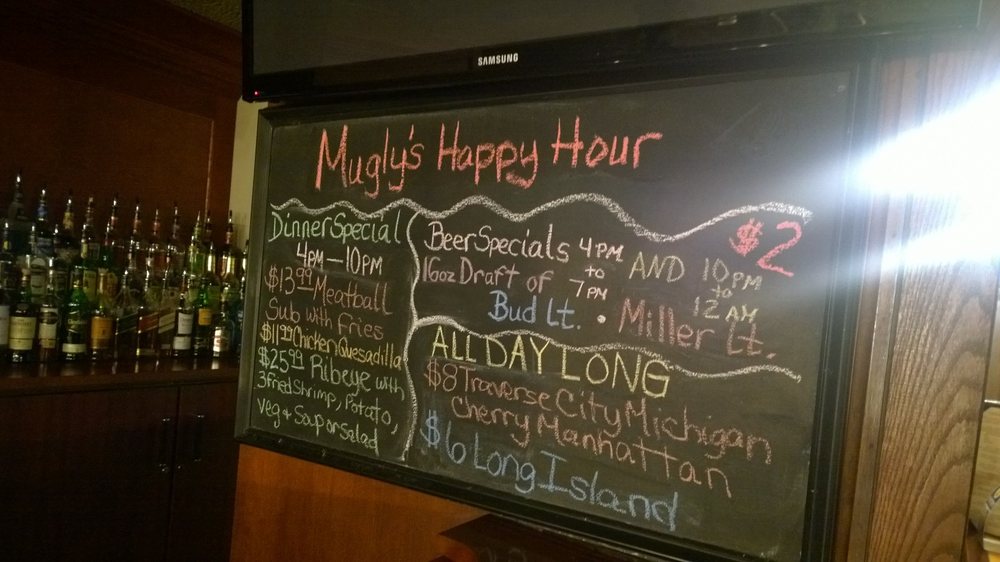 SAMSUNG
Mugly's Happy Hour
Dinner Special
4PM-10PM
$13.99 Meatball
Sub with fries
$11.99 Chicken Quesadilla
$25.99 Ribeye with
3 Fried Shrimp, Potato,
veg + Soup or Salad
$2
Beer Specials 4PM
to
7PM
AND 10PM
to
12AM
16oz Draft of
Bud Lt. • Miller Lt.
ALL DAY LONG
$8 Traverse City Michigan
Cherry Manhattan
$6 Long Island